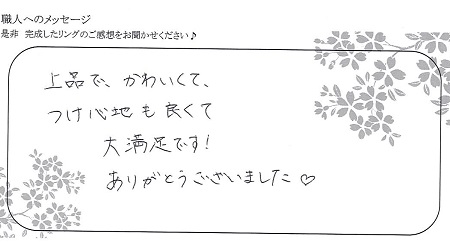 職人へのメッセージ
是非 完成したリングのご感想をお聞かせください♪
上品で、かわいくて、
つけ心地も良くて
大満足です!
ありがとうございました♡